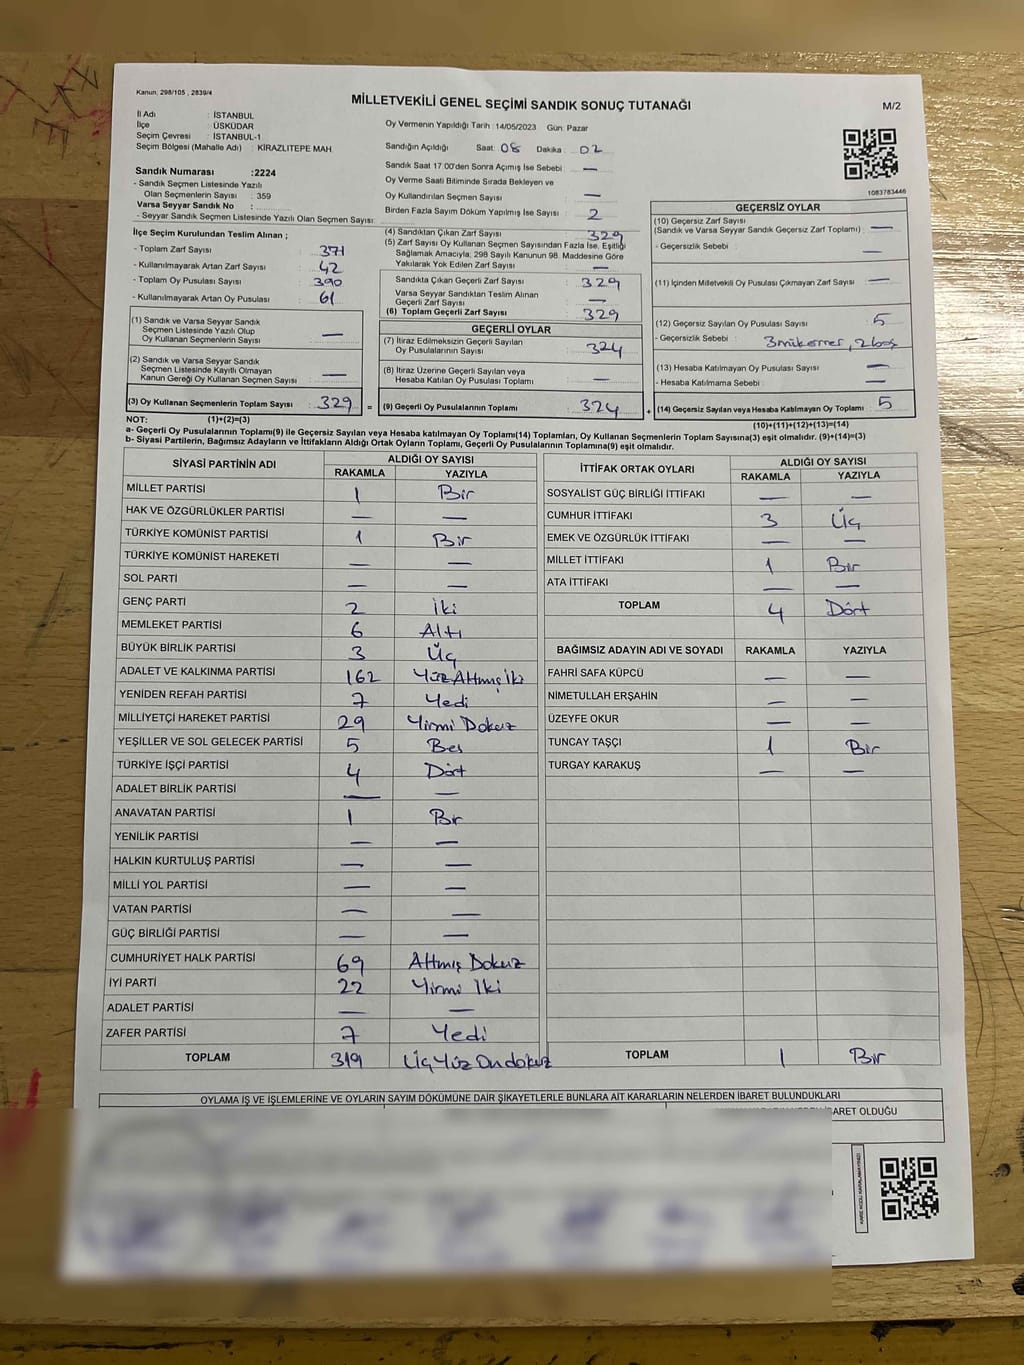 Kanun, 298/105 , 2839/4
MİLLETVEKİLİ GENEL SEÇİMİ SANDIK SONUÇ TUTANAĞI
M/2
İl Adı : İSTANBUL
İlçe : ÜSKÜDAR
Seçim Çevresi : İSTANBUL-1
Seçim Bölgesi (Mahalle Adı) : KİRAZLITEPE MAH.
Sandık Numarası :2224
- Sandık Seçmen Listesinde Yazılı
Olan Seçmenlerin Sayısı : 359
Varsa Seyyar Sandık No :
- Seyyar Sandık Seçmen Listesinde Yazılı Olan Seçmen Sayısı:
Oy Vermenin Yapıldığı Tarih : 14/05/2023 Gün: Pazar
Sandığın Açıldığı Saat: 08 Dakika : 02
Sandık Saat 17.00'den Sonra Açımış İse Sebebi : —
Oy Verme Saati Bitiminde Sırada Bekleyen ve
Oy Kullandırılan Seçmen Sayısı : —
Birden Fazla Sayım Döküm Yapılmış İse Sayısı : 2
1083783446
İlçe Seçim Kurulundan Teslim Alınan ;
- Toplam Zarf Sayısı : 371
- Kullanılmayarak Artan Zarf Sayısı : 42
- Toplam Oy Pusulası Sayısı : 390
- Kullanılmayarak Artan Oy Pusulası : 61
(1) Sandık ve Varsa Seyyar Sandık
Seçmen Listesinde Yazılı Olup
Oy Kullanan Seçmenlerin Sayısı : —
(2) Sandık ve Varsa Seyyar Sandık
Seçmen Listesinde Kayıtlı Olmayan
Kanun Gereği Oy Kullanan Seçmen Sayısı : —
(3) Oy Kullanan Seçmenlerin Toplam Sayısı : 329
(4) Sandıktan Çıkan Zarf Sayısı : 329
(5) Zarf Sayısı Oy Kullanan Seçmen Sayısından Fazla İse, Eşitliği
Sağlamak Amacıyla; 298 Sayılı Kanunun 98. Maddesine Göre
Yakılarak Yok Edilen Zarf Sayısı : —
Sandıkta Çıkan Geçerli Zarf Sayısı : 329
Varsa Seyyar Sandıktan Teslim Alınan
Geçerli Zarf Sayısı : —
(6) Toplam Geçerli Zarf Sayısı : 329
GEÇERLİ OYLAR
(7) İtiraz Edilmeksizin Geçerli Sayılan
Oy Pusulalarının Sayısı : 324
(8) İtiraz Üzerine Geçerli Sayılan veya
Hesaba Katılan Oy Pusulası Toplamı : —
= (9) Geçerli Oy Pusulalarının Toplamı : 324
GEÇERSİZ OYLAR
(10) Geçersiz Zarf Sayısı
(Sandık ve Varsa Seyyar Sandık Geçersiz Zarf Toplamı) : —
- Geçersizlik Sebebi : —
(11) İçinden Milletvekili Oy Pusulası Çıkmayan Zarf Sayısı : —
(12) Geçersiz Sayılan Oy Pusulası Sayısı : 5
- Geçersizlik Sebebi : 3 mükerrer, 2 boş
(13) Hesaba Katılmayan Oy Pusulası Sayısı : —
- Hesaba Katılmama Sebebi : —
+ (14) Geçersiz Sayılan veya Hesaba Katılmayan Oy Toplamı : 5
NOT: (1)+(2)=(3)
(10)+(11)+(12)+(13)=(14)
a- Geçerli Oy Pusulalarının Toplamı(9) ile Geçersiz Sayılan veya Hesaba katılmayan Oy Toplamı(14) Toplamları, Oy Kullanan Seçmenlerin Toplam Sayısına(3) eşit olmalıdır. (9)+(14)=(3)
b- Siyasi Partilerin, Bağımsız Adayların ve İttifakların Aldığı Ortak Oyların Toplamı, Geçerli Oy Pusulalarının Toplamına(9) eşit olmalıdır.
SİYASİ PARTİNİN ADI ALDIĞI OY SAYISI
RAKAMLA YAZIYLA
MİLLET PARTİSİ 1 Bir
HAK VE ÖZGÜRLÜKLER PARTİSİ — —
TÜRKİYE KOMÜNİST PARTİSİ 1 Bir
TÜRKİYE KOMÜNİST HAREKETİ — —
SOL PARTİ — —
GENÇ PARTİ 2 İki
MEMLEKET PARTİSİ 6 Altı
BÜYÜK BİRLİK PARTİSİ 3 Üç
ADALET VE KALKINMA PARTİSİ 162 Yüz Altmış İki
YENİDEN REFAH PARTİSİ 7 Yedi
MİLLİYETÇİ HAREKET PARTİSİ 29 Yirmi Dokuz
YEŞİLLER VE SOL GELECEK PARTİSİ 5 Beş
TÜRKİYE İŞÇİ PARTİSİ 4 Dört
ADALET BİRLİK PARTİSİ — —
ANAVATAN PARTİSİ 1 Bir
YENİLİK PARTİSİ — —
HALKIN KURTULUŞ PARTİSİ — —
MİLLİ YOL PARTİSİ — —
VATAN PARTİSİ — —
GÜÇ BİRLİĞİ PARTİSİ — —
CUMHURİYET HALK PARTİSİ 69 Altmış Dokuz
İYİ PARTİ 22 Yirmi İki
ADALET PARTİSİ — —
ZAFER PARTİSİ 7 Yedi
TOPLAM 319 Üç Yüz Ondokuz
İTTİFAK ORTAK OYLARI ALDIĞI OY SAYISI
RAKAMLA YAZIYLA
SOSYALİST GÜÇ BİRLİĞİ İTTİFAKI — —
CUMHUR İTTİFAKI 3 Üç
EMEK VE ÖZGÜRLÜK İTTİFAKI — —
MİLLET İTTİFAKI 1 Bir
ATA İTTİFAKI — —
TOPLAM 4 Dört
BAĞIMSIZ ADAYIN ADI VE SOYADI RAKAMLA YAZIYLA
FAHRİ SAFA KÜPCÜ — —
NİMETULLAH ERŞAHİN — —
ÜZEYFE OKUR — —
TUNCAY TAŞÇI 1 Bir
TURGAY KARAKUŞ — —
TOPLAM 1 Bir
OYLAMA İŞ VE İŞLEMLERİNE VE OYLARIN SAYIM DÖKÜMÜNE DAİR ŞİKAYETLERLE BUNLARA AİT KARARLARIN NELERDEN İBARET BULUNDUKLARI
İBARET OLDUĞU
KARE KODU KARALAMAYINIZ!